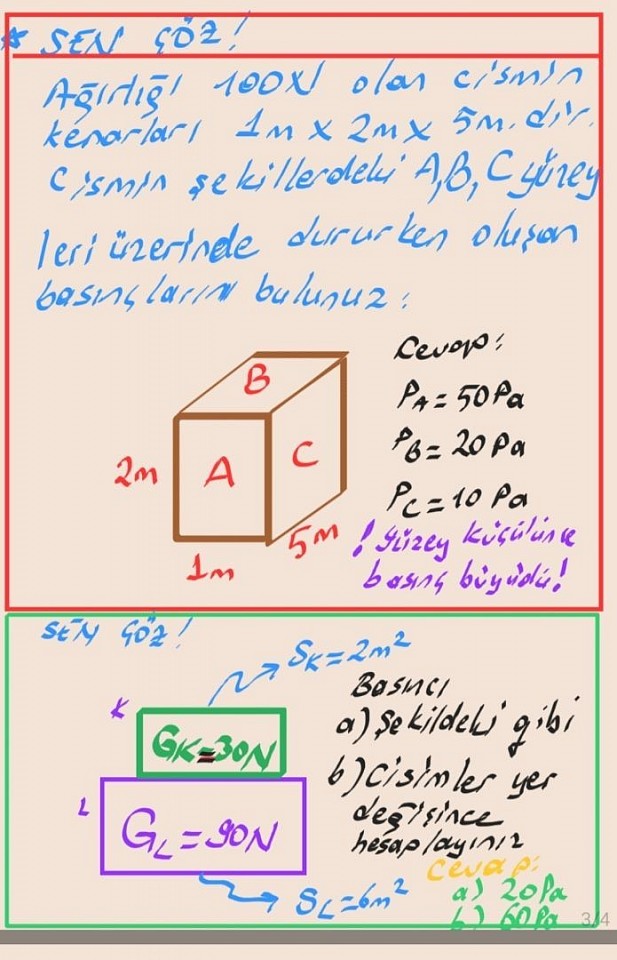 * SEN ÇÖZ!
Ağırlığı 100N olan cismin
kenarları 1m x 2m x 5m. dir.
Cismin şekillerdeki A,B,C yüzey
leri üzerinde dururken oluşan
basınçlarını bulunuz:
Cevap:
B
PA = 50 Pa
2m
A
C
PB = 20 Pa
PC = 10 Pa
1m
5m
! Yüzey küçülünce
basınç büyüdü!
SEN ÇÖZ!
SK = 2m²
K
GK = 30N
L
GL = 90N
SL = 6m²
Basıncı
a) Şekildeki gibi
b) Cisimler yer
değişince
hesaplayınız
Cevap:
a) 20Pa
b) 60Pa
3/4